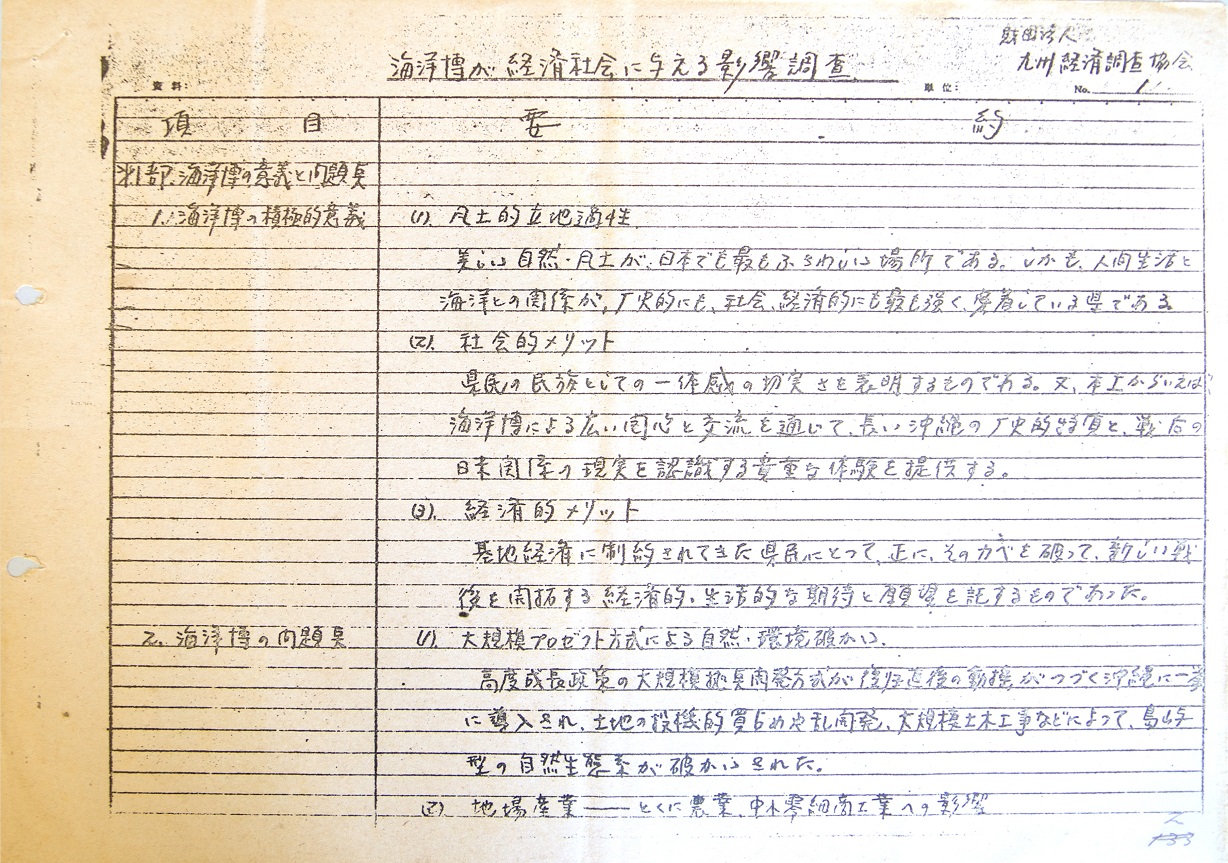 財団法人
海洋博が経済社会に与える影響調査
九州経済調査協会
資料: 単位: No. 1
項 目 要 約
第1部.海洋博の意義と問題点
1.海洋博の積極的意義 (1). 風土的立地適性
美しい自然・風土が、日本でも最もふさわしい場所である。しかも、人間生活と
海洋との関係が、歴史的にも、社会、経済的にも最も強く、密着している県である。
(2). 社会的メリット
県民の民族としての一体感の切実さを表明するものである。又、本土からいえば
海洋博による広い関心と交流を通じて、長い沖縄の歴史的特質と、戦后の
日米関係の現実を認識する貴重な体験を提供する。
(3). 経済的メリット
基地経済に制約されてきた県民にとって、正に、そのカベを破って、新しい戦
後を開拓する経済的・生活的な期待と願望を託するものであった。
2. 海洋博の問題点 (1). 大規模プロゼクト方式による自然・環境破かい.
高度成長政策の大規模拠点開発方式が復帰直後の動揺がつづく沖縄に一挙
に導入され、土地の投機的買占めや乱開発、大規模土木工事などによって、島しょ
型の自然生態系が破かいされた。
(2) 地場産業――とくに農業、中小零細商工業への影響